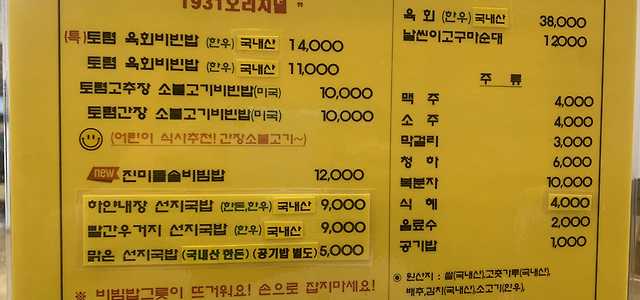 1931오리지널 "
(특)토렴 육회비빈밥 (한우) 국내산 14,000
토렴 육회비빈밥 (한우) 국내산 11,000
토렴고추장 소불고기비빈밥(미국) 10,000
토렴간장 소불고기비빈밥(미국) 10,000
(어린이 식사추천! 간장소불고기~)
new 진미돌솥비빔밥 12,000
하얀내장 선지국밥 (한돈,한우) 국내산 9,000
빨간우거지 선지국밥 (한우) 국내산 9,000
맑은 선지국밥 (국내산 한돈) (공기밥 별도) 5,000
※ 비빔밥그릇이 뜨거워요! 손으로 잡지마세요!
육 회 (한우) 국내산 38,000
날씬이고구마순대 12000
주 류
맥 주 4,000
소 주 4,000
막걸리 3,000
청 하 6,000
복분자 10,000
식 혜 4,000
음료수 2,000
공기밥 1,000
◉ 원산지 : 쌀(국내산),고춧가루(국내산),
배추,김치(국내산),소고기(한우),